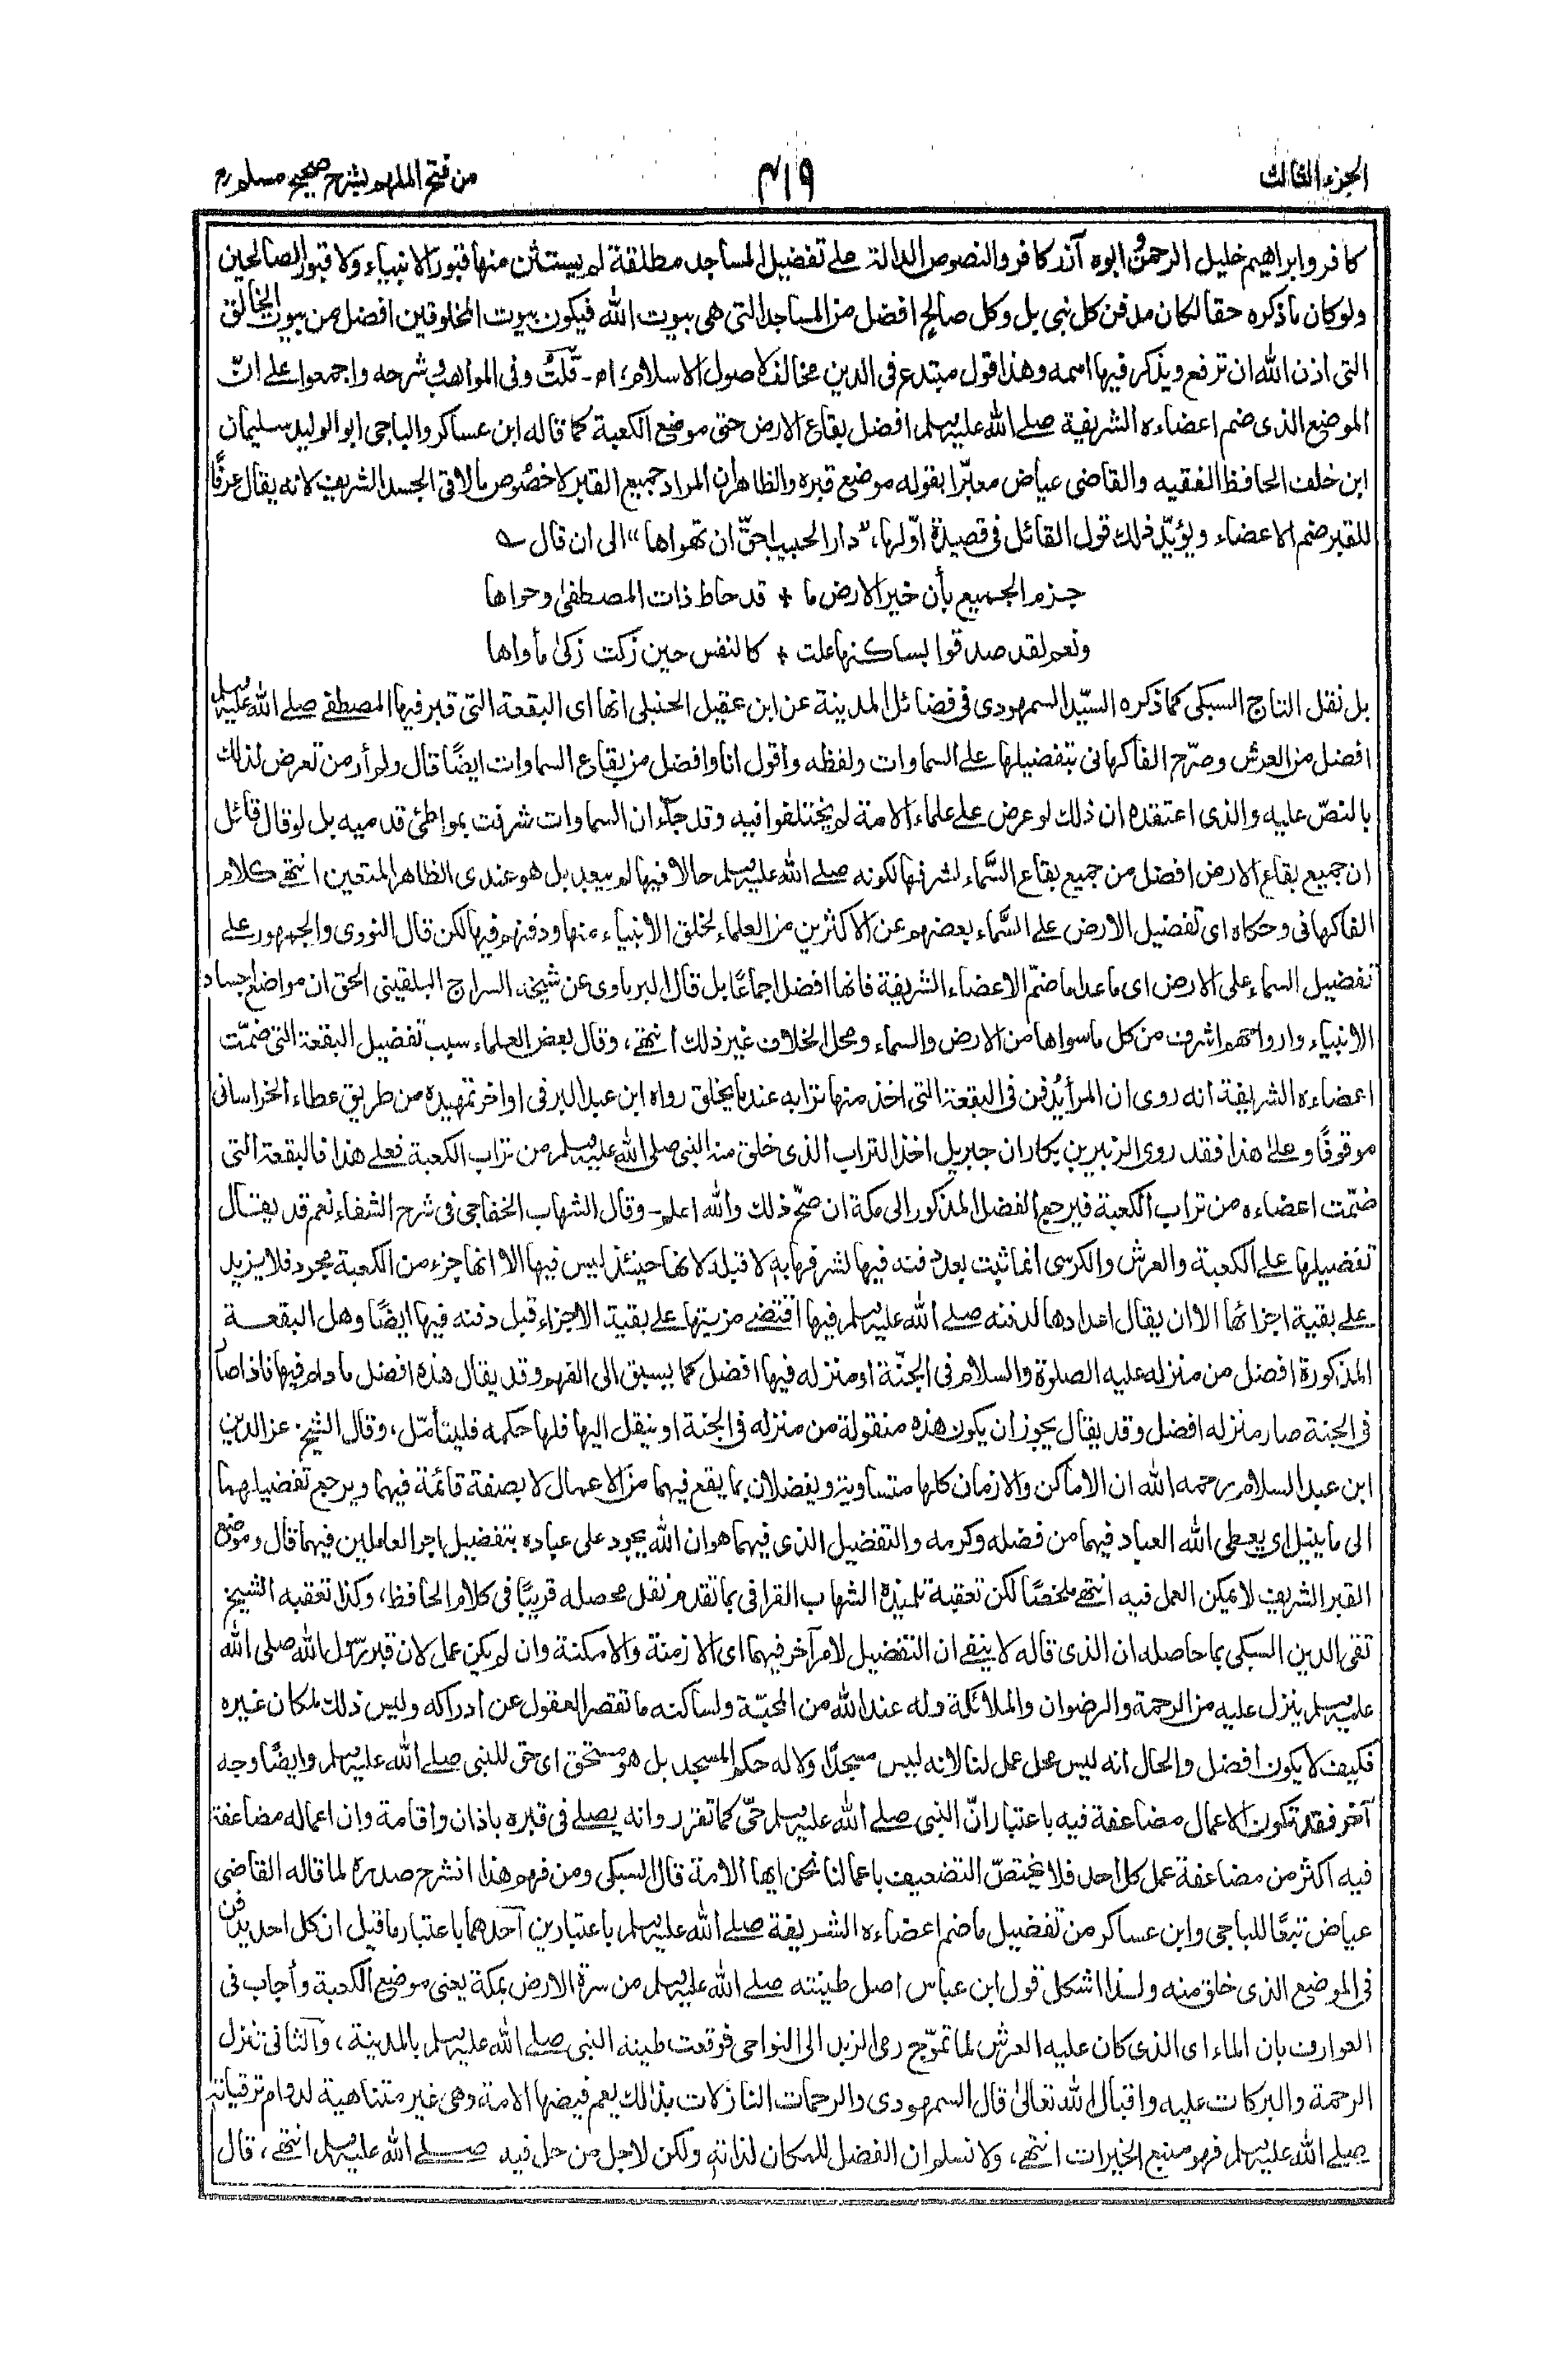 الجزء الثالث
٤١٩
من فتح الملهم بشرح صحيح مسلم رح
كافر وابراهيم خليل الرحمٰن وابوه آزر كافر والنصوص الدالة علے تفضيل المساجد مطلقة لم يستثن منها قبور الانبياء ولا قبور الصالحين
ولو كان ما ذكره حقا لكان مدفن كل نبى بل وكل صالح افضل من المساجد التى هى بيوت الله فيكون بيوت المخلوقين افضل من بيوت الخالق
التى اذن الله ان ترفع ويذكر فيها اسمه وهذا قول مبتدع فى الدين مخالف لاصول الاسلام، اھ - قلتُ وفى المواهب وشرحه واجمعوا علے انّ
الموضع الذى ضم اعضاءه الشريفة صلے الله عليه وسلم افضل بقاع الارض حتى موضع الكعبة كما قاله ابن عساكر والباجى ابو الوليد سليمان
ابن خلف الحافظ الفقيه والقاضى عياض معبّرا بقوله موضع قبره والظاهر ان المراد جميع القبر لا خصُوص ما لاقى الجسد الشريف لانه يقال عرفًا
للقبر ضم الاعضاء ويؤيّد ذلك قول القائل فى قصيدة اوّلها، "دار الحبيب احقّ ان تهواها" الى ان قال ؎
جزم الجميع بأن خير الارض ما + قد حاط ذات المصطفىٰ وحواها
ونعم لقد صدقوا بساكنها علت + كالنفس حين زكت زكىٰ مأواها
بل نقل التاج السبكى كما ذكره السيّد السمهودى فى فضائل المدينة عن ابن عقيل الحنبلى انها اى البقعة التى قبر فيها المصطفے صلے الله عليه وسلم
افضل من العرش وصرّح الفاكهانى بتفضيلها علے السماوات ولفظه واقول انا وافضل من بقاع السماوات ايضًا قال ولم أر من تعرض لذلك
بالنصّ عليه والذى اعتقده ان ذلك لو عرض علے علماء الامة لم يختلفوا فيه وقد جاء ان السماوات شرفت بمواطئ قدميه بل لو قال قائل
ان جميع بقاع الارض افضل من جميع بقاع السَّماء لشرفها لكونه صلے الله عليه وسلم حالا فيها لم يبعد بل هو عندى الظاهر المتعين انتهے كلام
الفاكهانى وحكاه اى تفضيل الارض علے السَّماء بعضهم عن الاكثرين من العلماء لخلق الأنبياء منها ودفنهم فيها لكن قال النووى والجمهور علے
تفضيل السماء على الارض اى ما عدا ما ضمّ الاعضاء الشريفة فانها افضل اجماعًا بل قال البرماوى عن شيخه السراج البلقينى الحق ان مواضع اجساد
الانبياء وارواحهم اشرف من كل ما سواها من الارض والسماء ومحل الخلاف غير ذلك انتهے، وقال بعض العلماء سبب تفضيل البقعة التى ضمّت
اعضاءه الشريفة انه روى ان المرأ يُدفن فى البقعة التى اخذ منها ترابه عند ما يخلق رواه ابن عبد البر فى اواخر تمهيده من طريق عطاء الخراسانى
موقوفًا وعلى هذا فقد روى الزبير بن بكار ان جبريل اخذ التراب الذى خلق منه النبى صلى الله عليه وسلم من تراب الكعبة فعلے هذا فالبقعة التى
ضمّت اعضاءه من تراب الكعبة فيرجع الفضل المذكور الى مكة ان صحّ ذلك والله اعلم - وقال الشهاب الخفاجى فى شرح الشفاء نعم قد يقال
تفضيلها علے الكعبة والعرش والكرسى انما ثبت بعد دفنه فيها لشرفها به لا قبله لانها حينئذ ليس فيها الا انها جزء من الكعبة مجرد فلا يزيد
علے بقية اجزائها الا ان يقال اعدادها لدفنه صلے الله عليه وسلم فيها اقتضے مزيتها علے بقية الاجزاء قبل دفنه فيها ايضًا وهل البقعة
المذكورة افضل من منزله عليه الصلوة والسلام فى الجنّة او منزله فيها افضل كما يسبق الى الفهم وقد يقال هذه افضل ما دام فيها فاذا صار
فى الجنة صار منزله افضل وقد يقال يجوز ان يكون هذه منقولة من منزله فى الجنة او ينقل اليها فلها حكمه فليتأمّل، وقال الشيخ عز الدين
ابن عبد السلام رحمه الله ان الاماكن والازمان كلها متساوية ويفضلان بما يقع فيهما من الاعمال لا بصفة قائمة فيهما ويرجع تفضيلهما
الى ما ينيل اى يعطى الله العباد فيهما من فضله وكرمه والتفضيل الذى فيهما هو ان الله يجود على عباده بتفضيل اجر العاملين فيهما قال وموضع
القبر الشريف لا يمكن العمل فيه انتهے ملخصًا لكن تعقبه تلميذه الشهاب القرافى بما تقدم نقل محصله قريبًا فى كلام الحافظ، وكذا تعقبه الشيخ
تقى الدين السبكى بما حاصله ان الذى قاله لا ينفے ان التفضيل لامر آخر فيهما اى الازمنة والامكنة وان لم يكن عمل لان قبر رسول الله صلى الله
عليه وسلم ينزل عليه من الرحمة والرضوان والملائكة وله عند الله من المحبّة ولساكنه ما تقصر العقول عن ادراكه وليس ذلك لمكان غيره
فكيف لا يكون افضل والحال انه ليس محل عمل لنا لانه ليس مسجدًا ولا له حكم المسجد بل هو مستحق اى حق للنبى صلے الله عليه وسلم وايضًا وجه
آخر فقد تكون الاعمال مضاعفة فيه باعتبار انّ النبى صلے الله عليه وسلم حىّ كما تقرر وانه يصلے فى قبره باذان واقامة وان اعماله مضاعفة
فيه اكثر من مضاعفة عمل كل احد فلا يختصّ التضعيف باعمالنا نحن ايها الامة قال السبكى ومن فهم هذا انشرح صدره لما قاله القاضى
عياض تبعًا للباجى وابن عساكر من تفضيل ما ضم اعضاءه الشريفة صلے الله عليه وسلم باعتبارين آحدهما باعتبار ما قيل ان كل احد يدفن
فى الموضع الذى خلق منه ولذا اشكل قول ابن عباس اصل طينته صلے الله عليه وسلم من سرة الارض بمكة يعنى موضع الكعبة وأجاب فى
العوارف بان الماء اى الذى كان عليه العرش لما تموّج رمى الزبد الى النواحى فوقعت طينة النبى صلے الله عليه وسلم بالمدينة، وآلثانى تنزل
الرحمة والبركات عليه واقبال الله تعالىٰ قال السمهودى والرحمات النازلات بذالك يعم فيضها الامة وهى غير متناهية لدوام ترقياته
صلے الله عليه وسلم فهو منبع الخيرات انتهے، ولا نسلم ان الفضل للمكان لذاته ولكن لاجل من حل فيه صلے الله عليه وسلم انتهے، قال